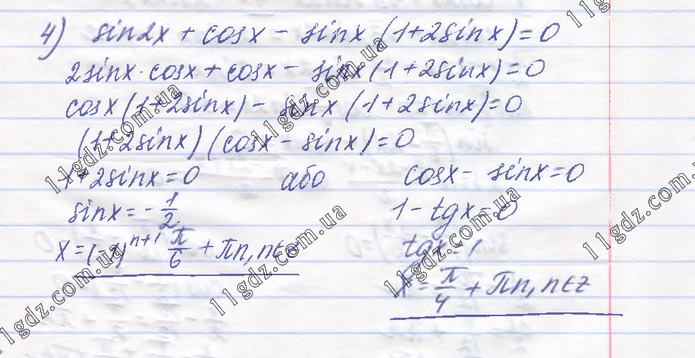 4) sin2x + cosx - sinx (1+2sinx)=0
2sinx·cosx + cosx - sinx (1+2sinx)=0
cosx (1+2sinx) - sinx (1+2sinx)=0
(1+2sinx)(cosx - sinx)=0
1+2sinx=0 або cosx - sinx=0
sinx = -1/2 1 - tgx=0
x = (-1)^{n+1} π/6 + πn, n∈z tgx = 1
x = π/4 + πn, n∈z
11gdz.com.ua
11gdz.com.ua
11gdz.com.ua
11gdz.com.ua
11gdz.com.ua
11gdz.com.ua
11gdz.com.ua